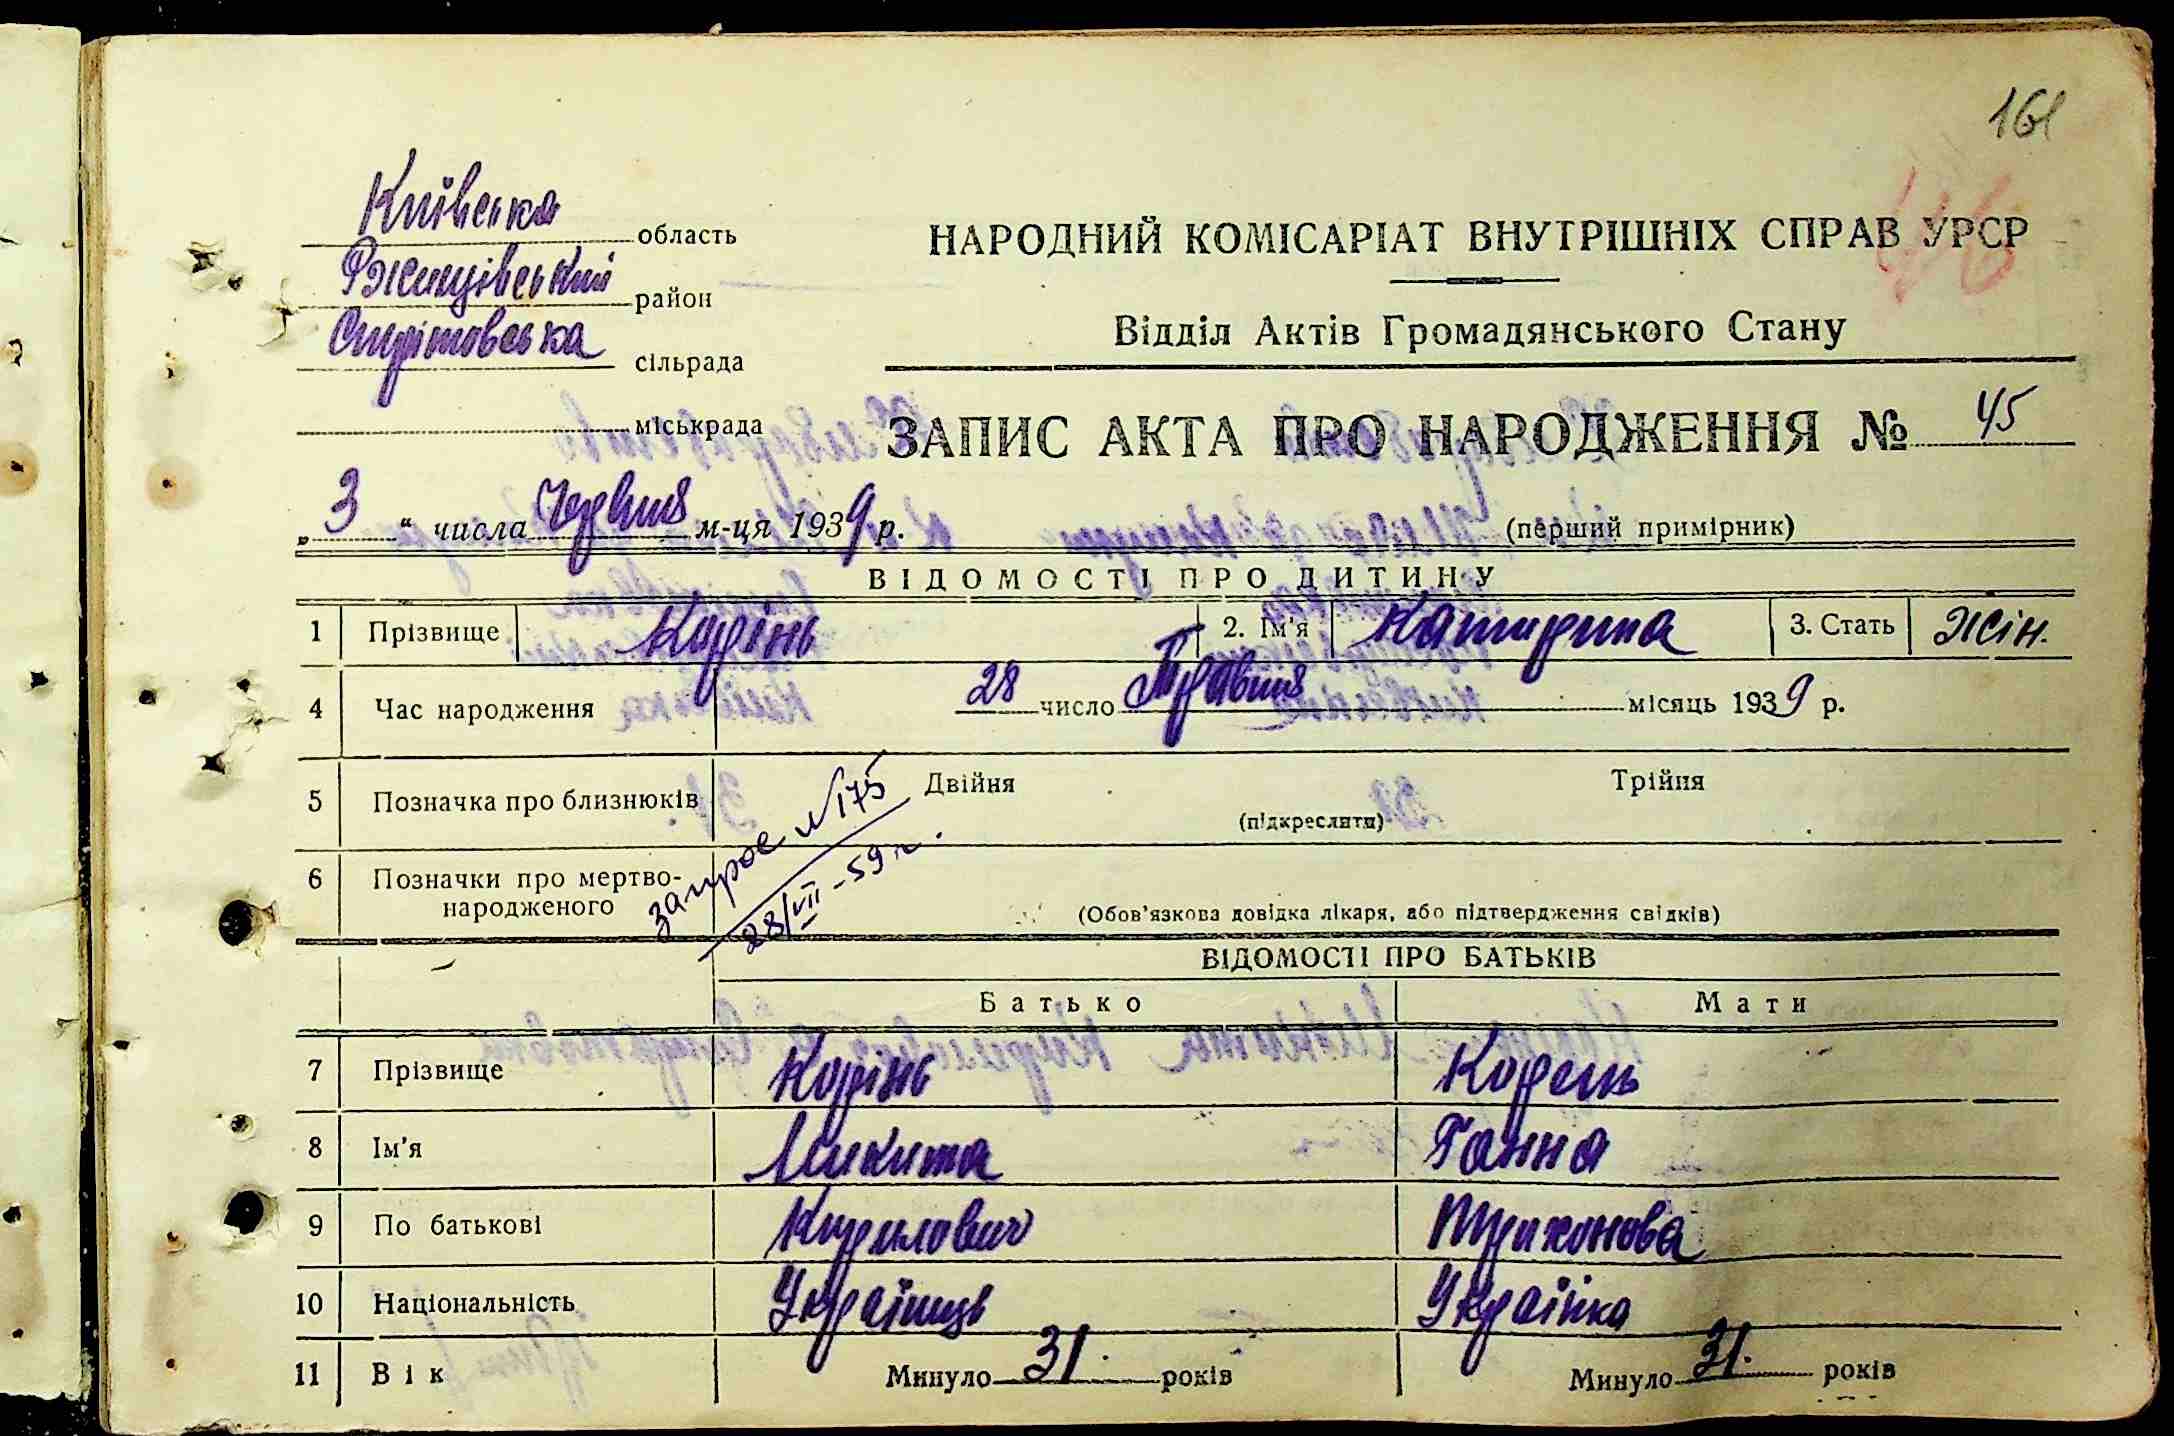 161
Київська область
Ржищівський район
сільрада
міськрада
НАРОДНИЙ КОМІСАРІАТ ВНУТРІШНІХ СПРАВ УРСР
Відділ Актів Громадянського Стану
ЗАПИС АКТА ПРО НАРОДЖЕННЯ № 45
„3“ числа Червня м-ця 1939 р.
(перший примірник)
ВІДОМОСТІ ПРО ДИТИНУ
1 Прізвище Корінь 2. Ім'я Катирина 3. Стать Жін.
4 Час народження 28 число Травня місяць 1939 р.
5 Позначка про близнюків Двійня Трійня
(підкреслити)
запрос №175
28/VII-59 г.
6 Позначки про мертво-
народженого
(Обов'язкова довідка лікаря, або підтвердження свідків)
ВІДОМОСТІ ПРО БАТЬКІВ
Батько Мати
7 Прізвище Корінь Корень
8 Ім'я Микита Ганна
9 По батькові Кирилович Трихонова
10 Національність Українць Українка
11 Вік Минуло 31 років Минуло 31. років